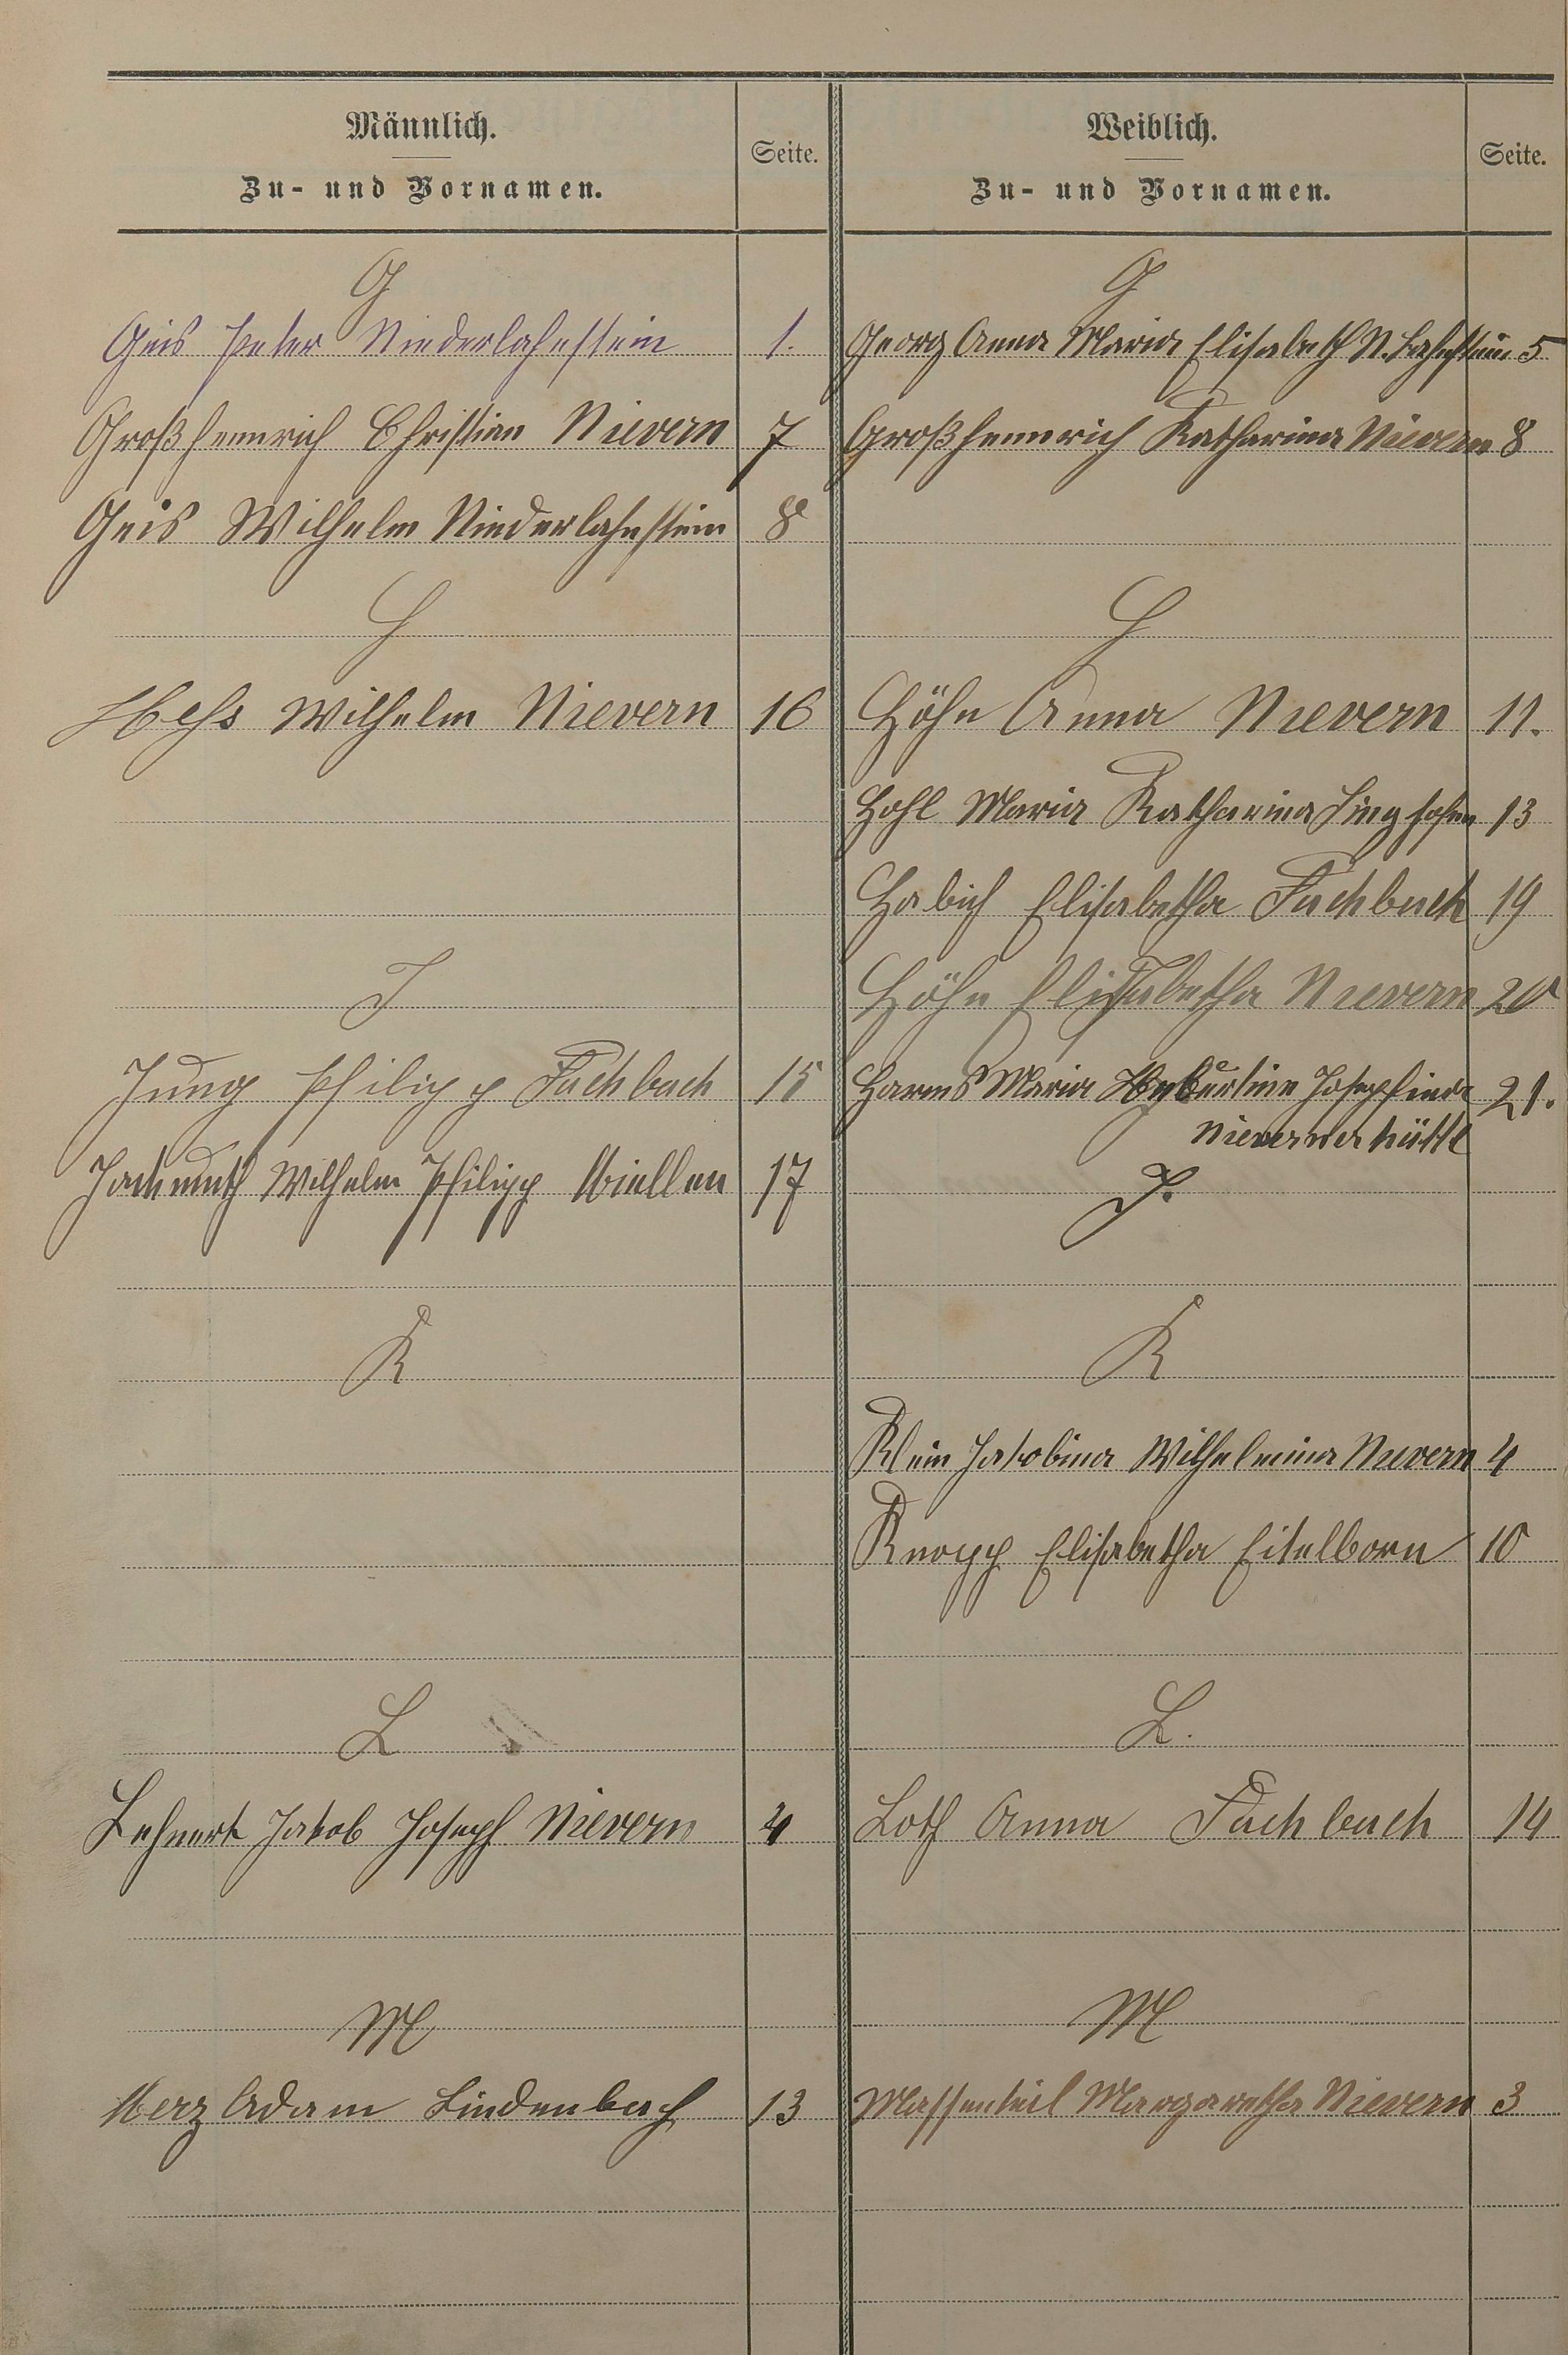 Männlich.
Zu- und Vornamen.
Seite.
G
Geis Peter Niederlahnstein 1.
Großhennrich Christian Nievern 7
Geis Wilhelm Niederlahnstein 8
H
Hess Wilhelm Nievern 16
J
Jung Philipp Fachbach 15
Jachmuth Wilhelm Philipp Miellen 17
K
L
Lehnert Jakob Joseph Nievern 4
M
Merz Adam Lindenbach 13
Weiblich.
Zu- und Vornamen.
Seite.
G
Georg Anna Maria Elisabeth N.Lahnstein 5
Großhennrich Katharina Nievern 8
H
Höhn Anna Nievern 11.
Hohl Maria Katharina Singhofen 13
Habich Elisabetha Fachbach 19
Höhn Elisabetha Nievern 20
Harms Maria Hubertine Josephina 21.
Nieverner hütte
J.
K
Klein Jakobina Wilhelmina Nievern 4
Knopp Elisabetha Eitelborn 10
L.
Loth Anna Fachbach 14
M
Massenkeil Margaretha Nievern 3